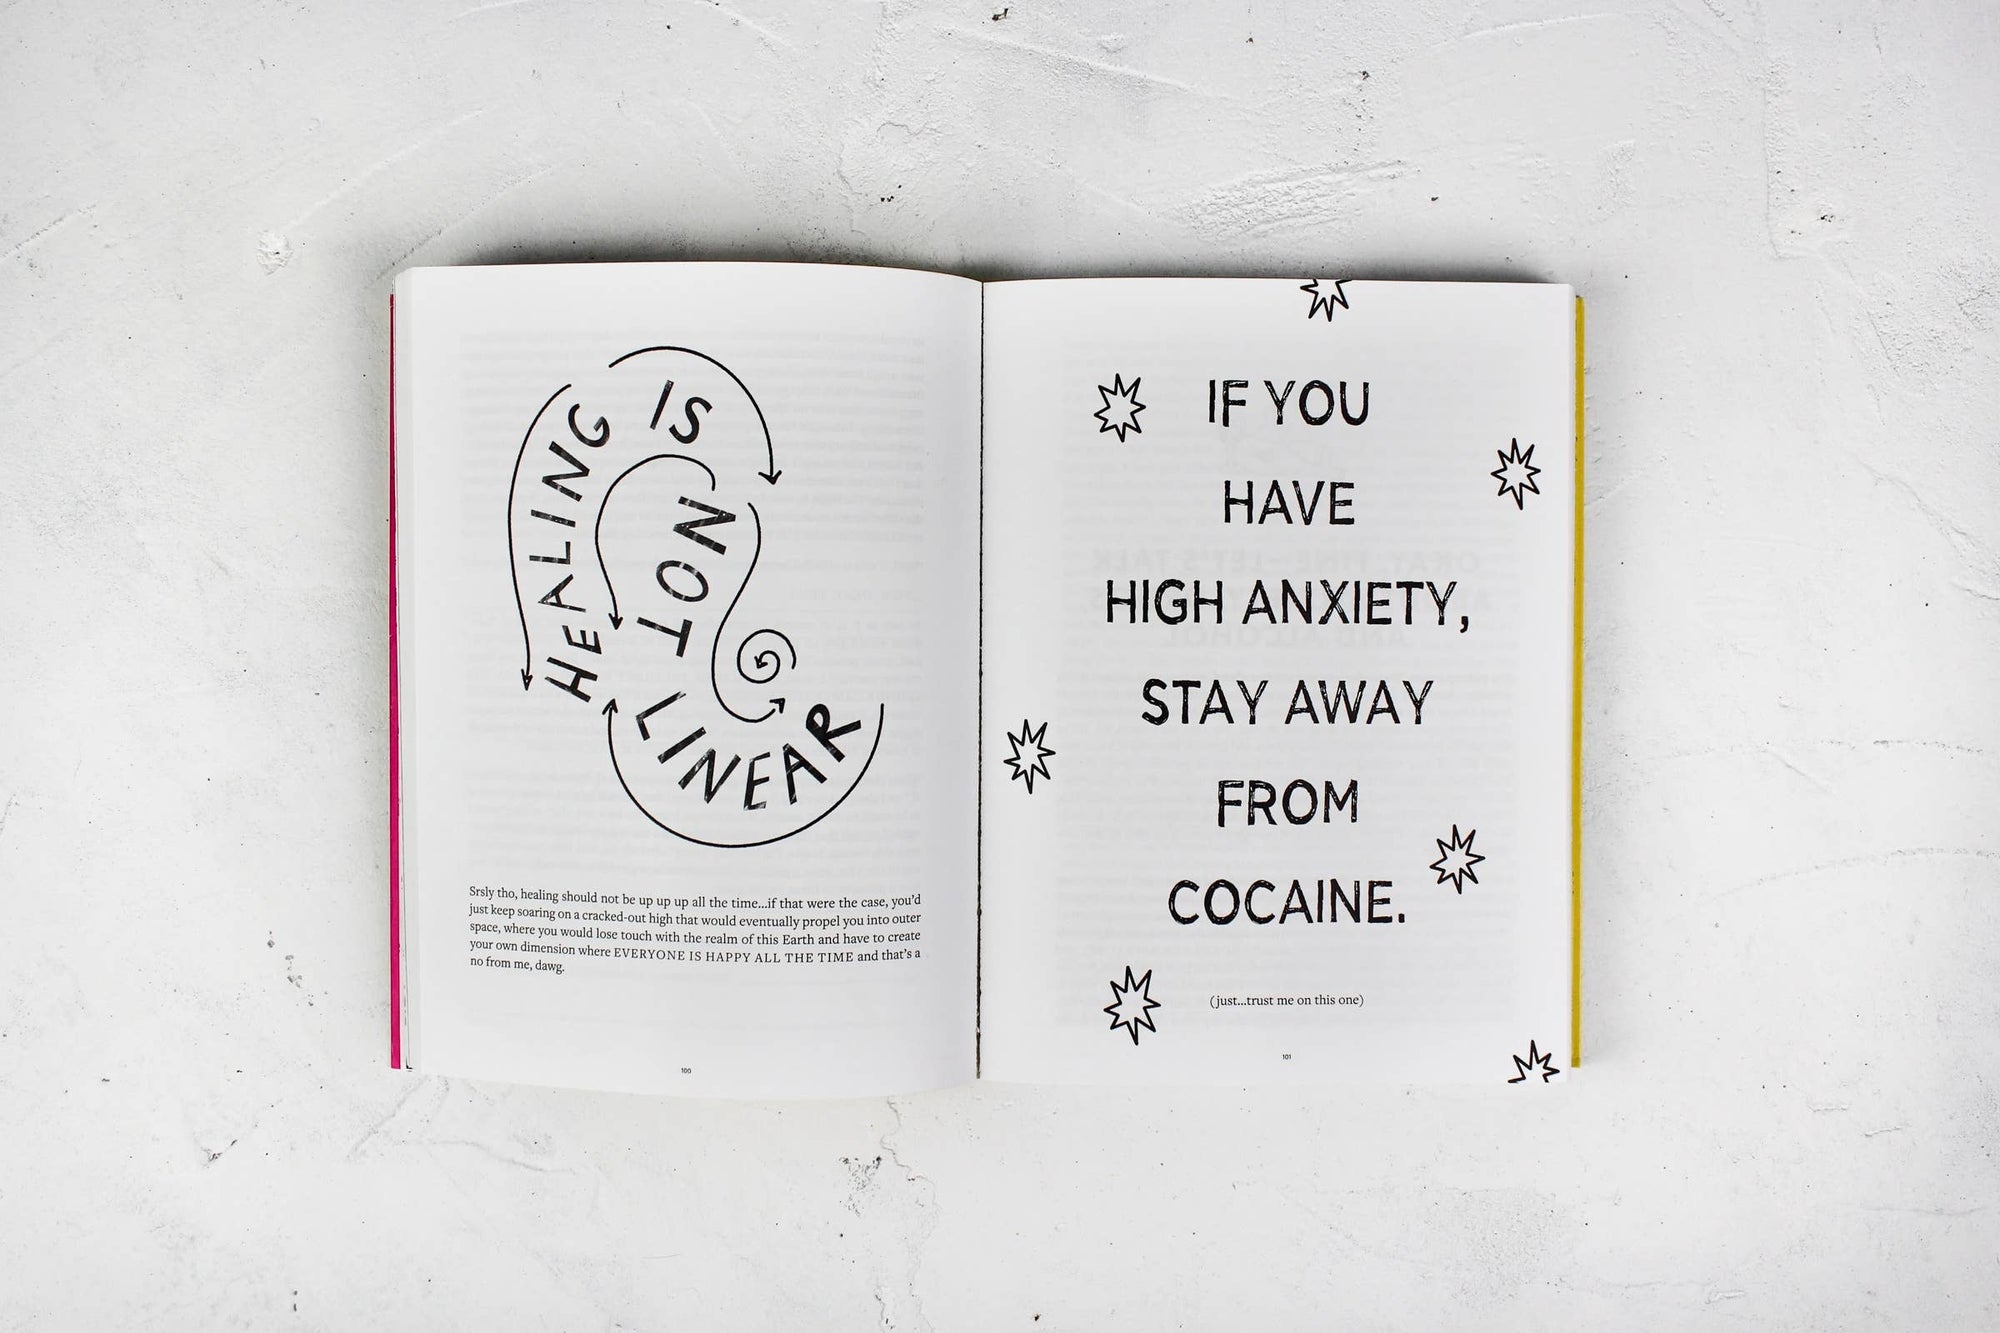 HEALING IS
NOT
LINEAR
Srsly tho, healing should not be up up up all the time...if that were the case, you'd
just keep soaring on a cracked-out high that would eventually propel you into outer
space, where you would lose touch with the realm of this Earth and have to create
your own dimension where EVERYONE IS HAPPY ALL THE TIME and that's a
no from me, dawg.
100
IF YOU
HAVE
HIGH ANXIETY,
STAY AWAY
FROM
COCAINE.
(just...trust me on this one)
101